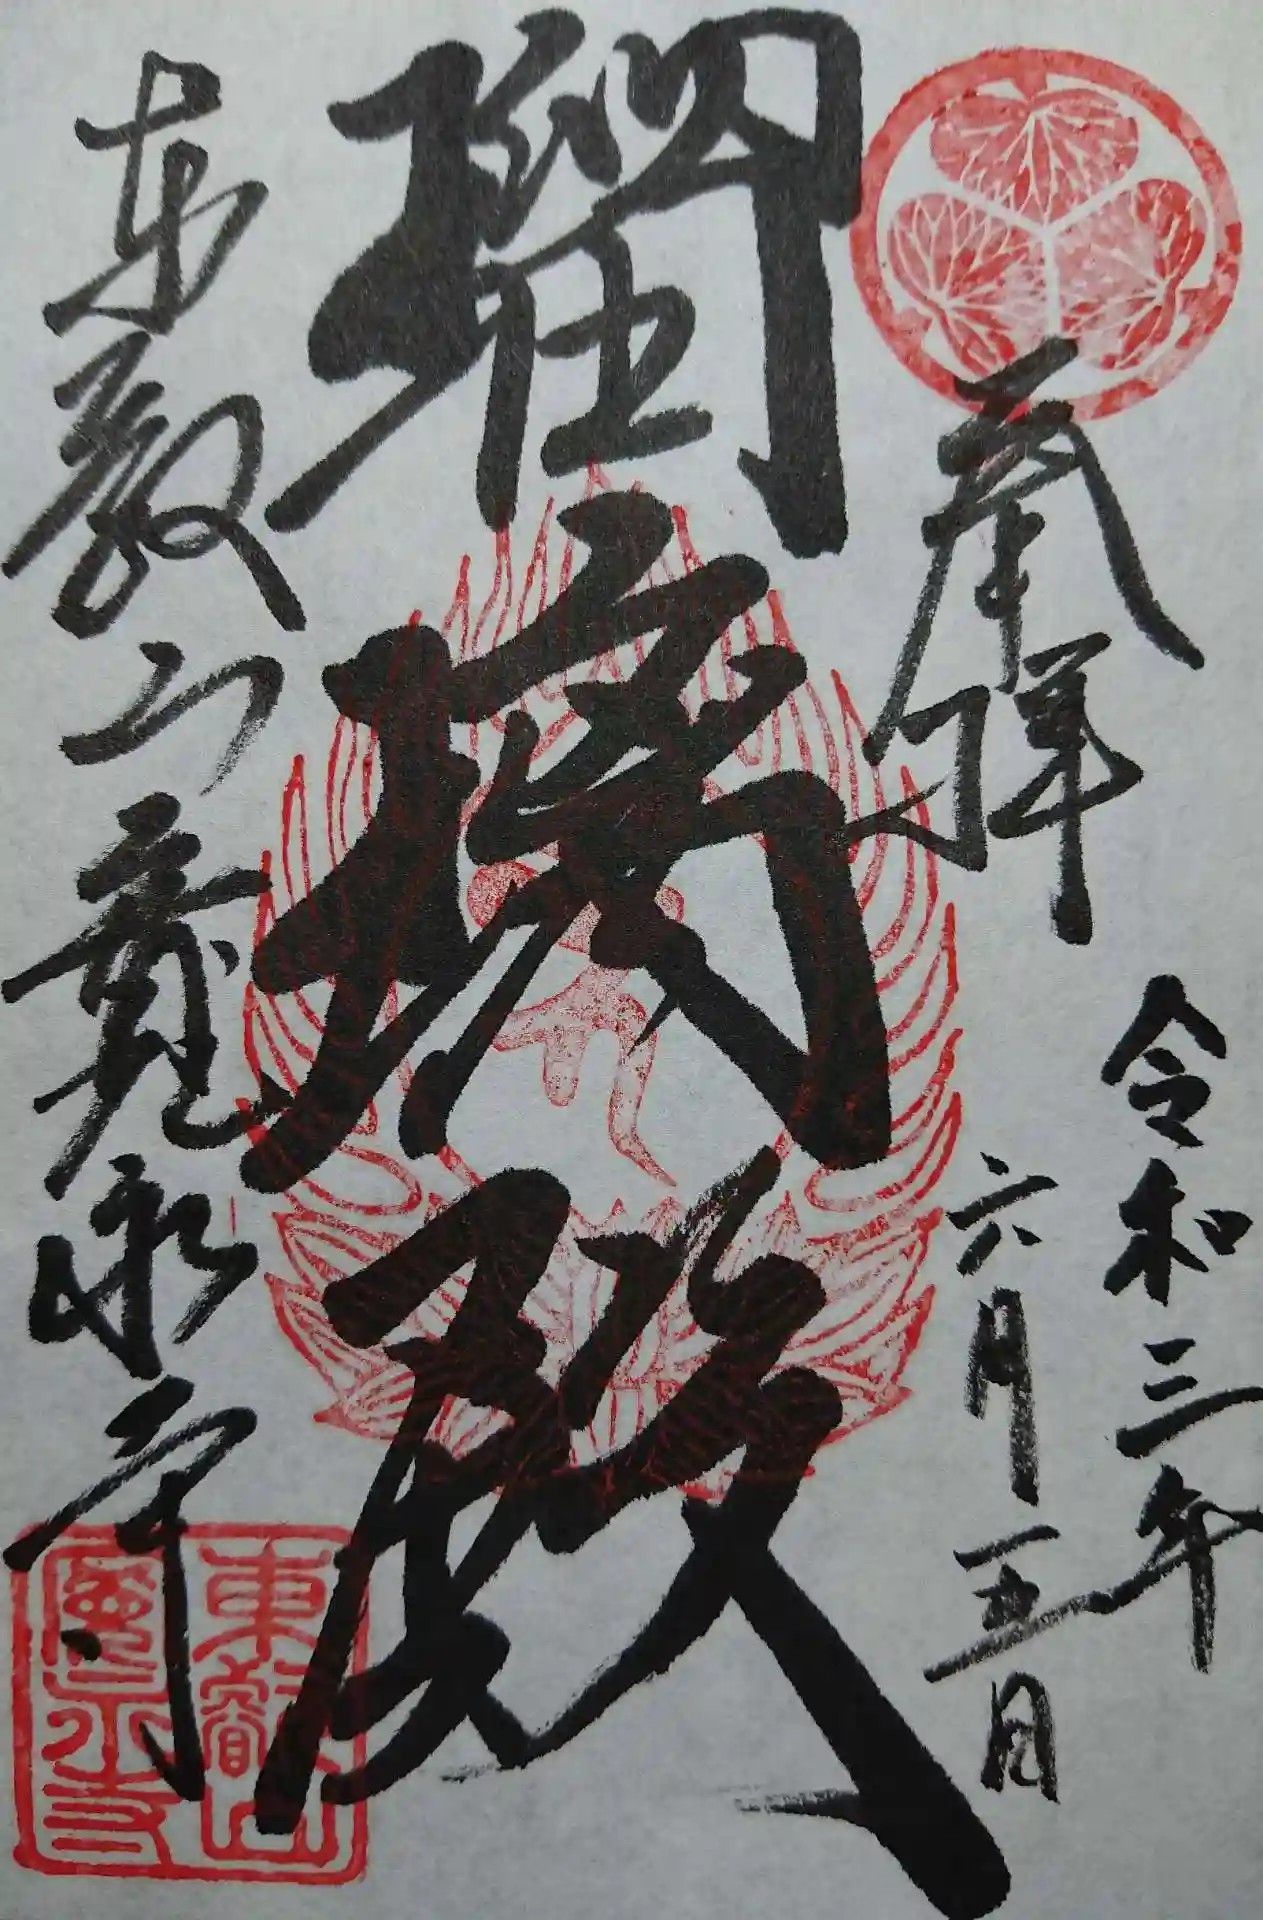 奉拝
令和三年
六月五日
瑠璃殿
東叡山寛永寺
東叡山
寛永寺